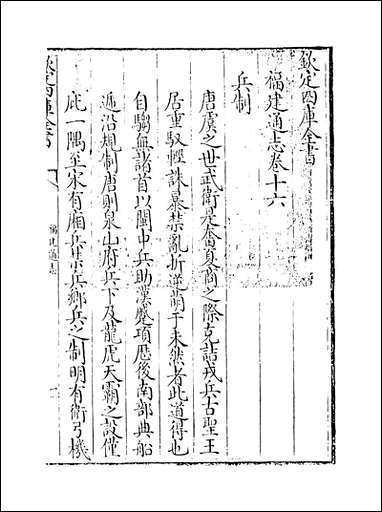 欽定四庫全書
福建通志卷十六
兵制
唐虞之世武衛是奮夏商之際克詰戎兵古聖王
居重馭輕誅暴禁亂折逆萌于未然者此道得也
自騶無諸首以閩中兵助漢蹙項厯後南部典船
遞沿規制唐則泉山府兵下及龍虎天霸之設僅
庇一隅至宋有廂兵禁兵鄉兵之制明有衛弓機
欽定四庫全書
福建通志